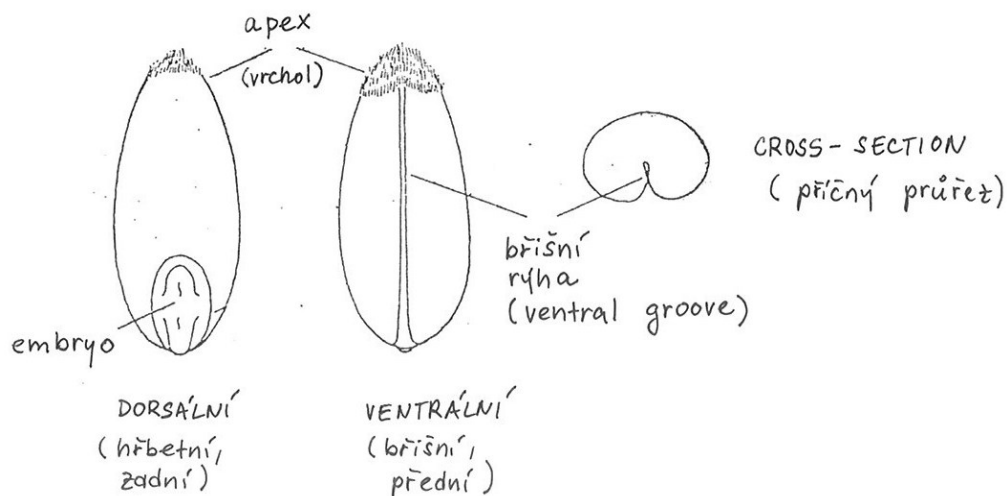 apex
(vrchol)
CROSS-SECTION
(příčný průřez)
břišní
rýha
(ventral groove)
embryo
DORSÁLNÍ
(hřbetní,
zadní)
VENTRÁLNÍ
(břišní,
přední)